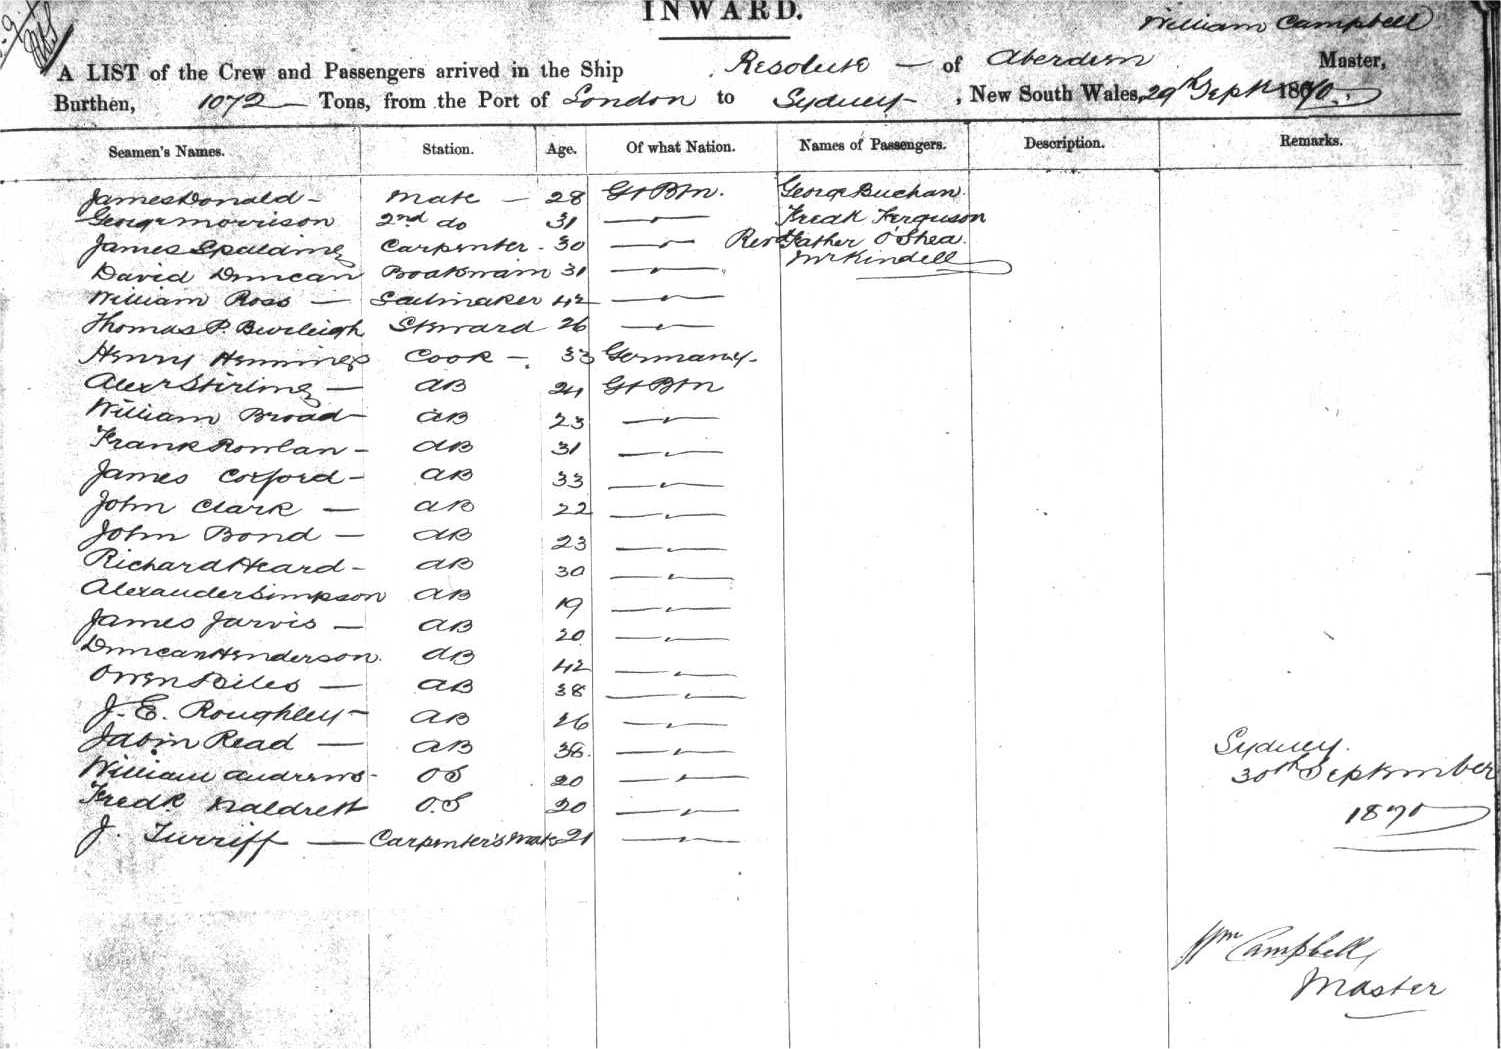 INWARD.
William Campbell
A LIST of the Crew and Passengers arrived in the Ship Resolute — of Aberdeen Master,
Burthen, 1072 Tons, from the Port of London to Sydney, New South Wales, 29th Sept 1870.
Seamen's Names. Station. Age. Of what Nation. Names of Passengers. Description. Remarks.
James Donald — Mate — 28 Gt Btn. George Buchan
George Morrison 2nd do 31 —"— Fredk Ferguson
James Spalding Carpenter - 30 —"— Revd Father O'Shea
David Duncan Boatswain 31 —"— Mr Kindell
William Ross — Sailmaker 42 —"—
Thomas P. Burleigh Steward 26 —"—
Henry Hennings Cook — 33 Germany
Alexr Stirling — AB 24 Gt Btn
William Broad — AB 23 —"—
Frank Rowlan — AB 31 —"—
James Coxford — AB 33 —"—
John Clark — AB 22 —"—
John Bond — AB 23 —"—
Richard Heard — AB 30 —"—
Alexander Simpson AB 19 —"—
James Jarvis — AB 20 —"—
Duncan Henderson AB 42 —"—
Owen — AB 38 —"—
J. E. Roughley — AB 26 —"—
Read — AB 38 —"—
William Andrews - OS 20 —"—
Fredk Naldrett O.S 20 —"—
J. Turriff — Carpenter's Mate 21 —"—
Sydney.
30th September
1870
Wm Campbell
Master